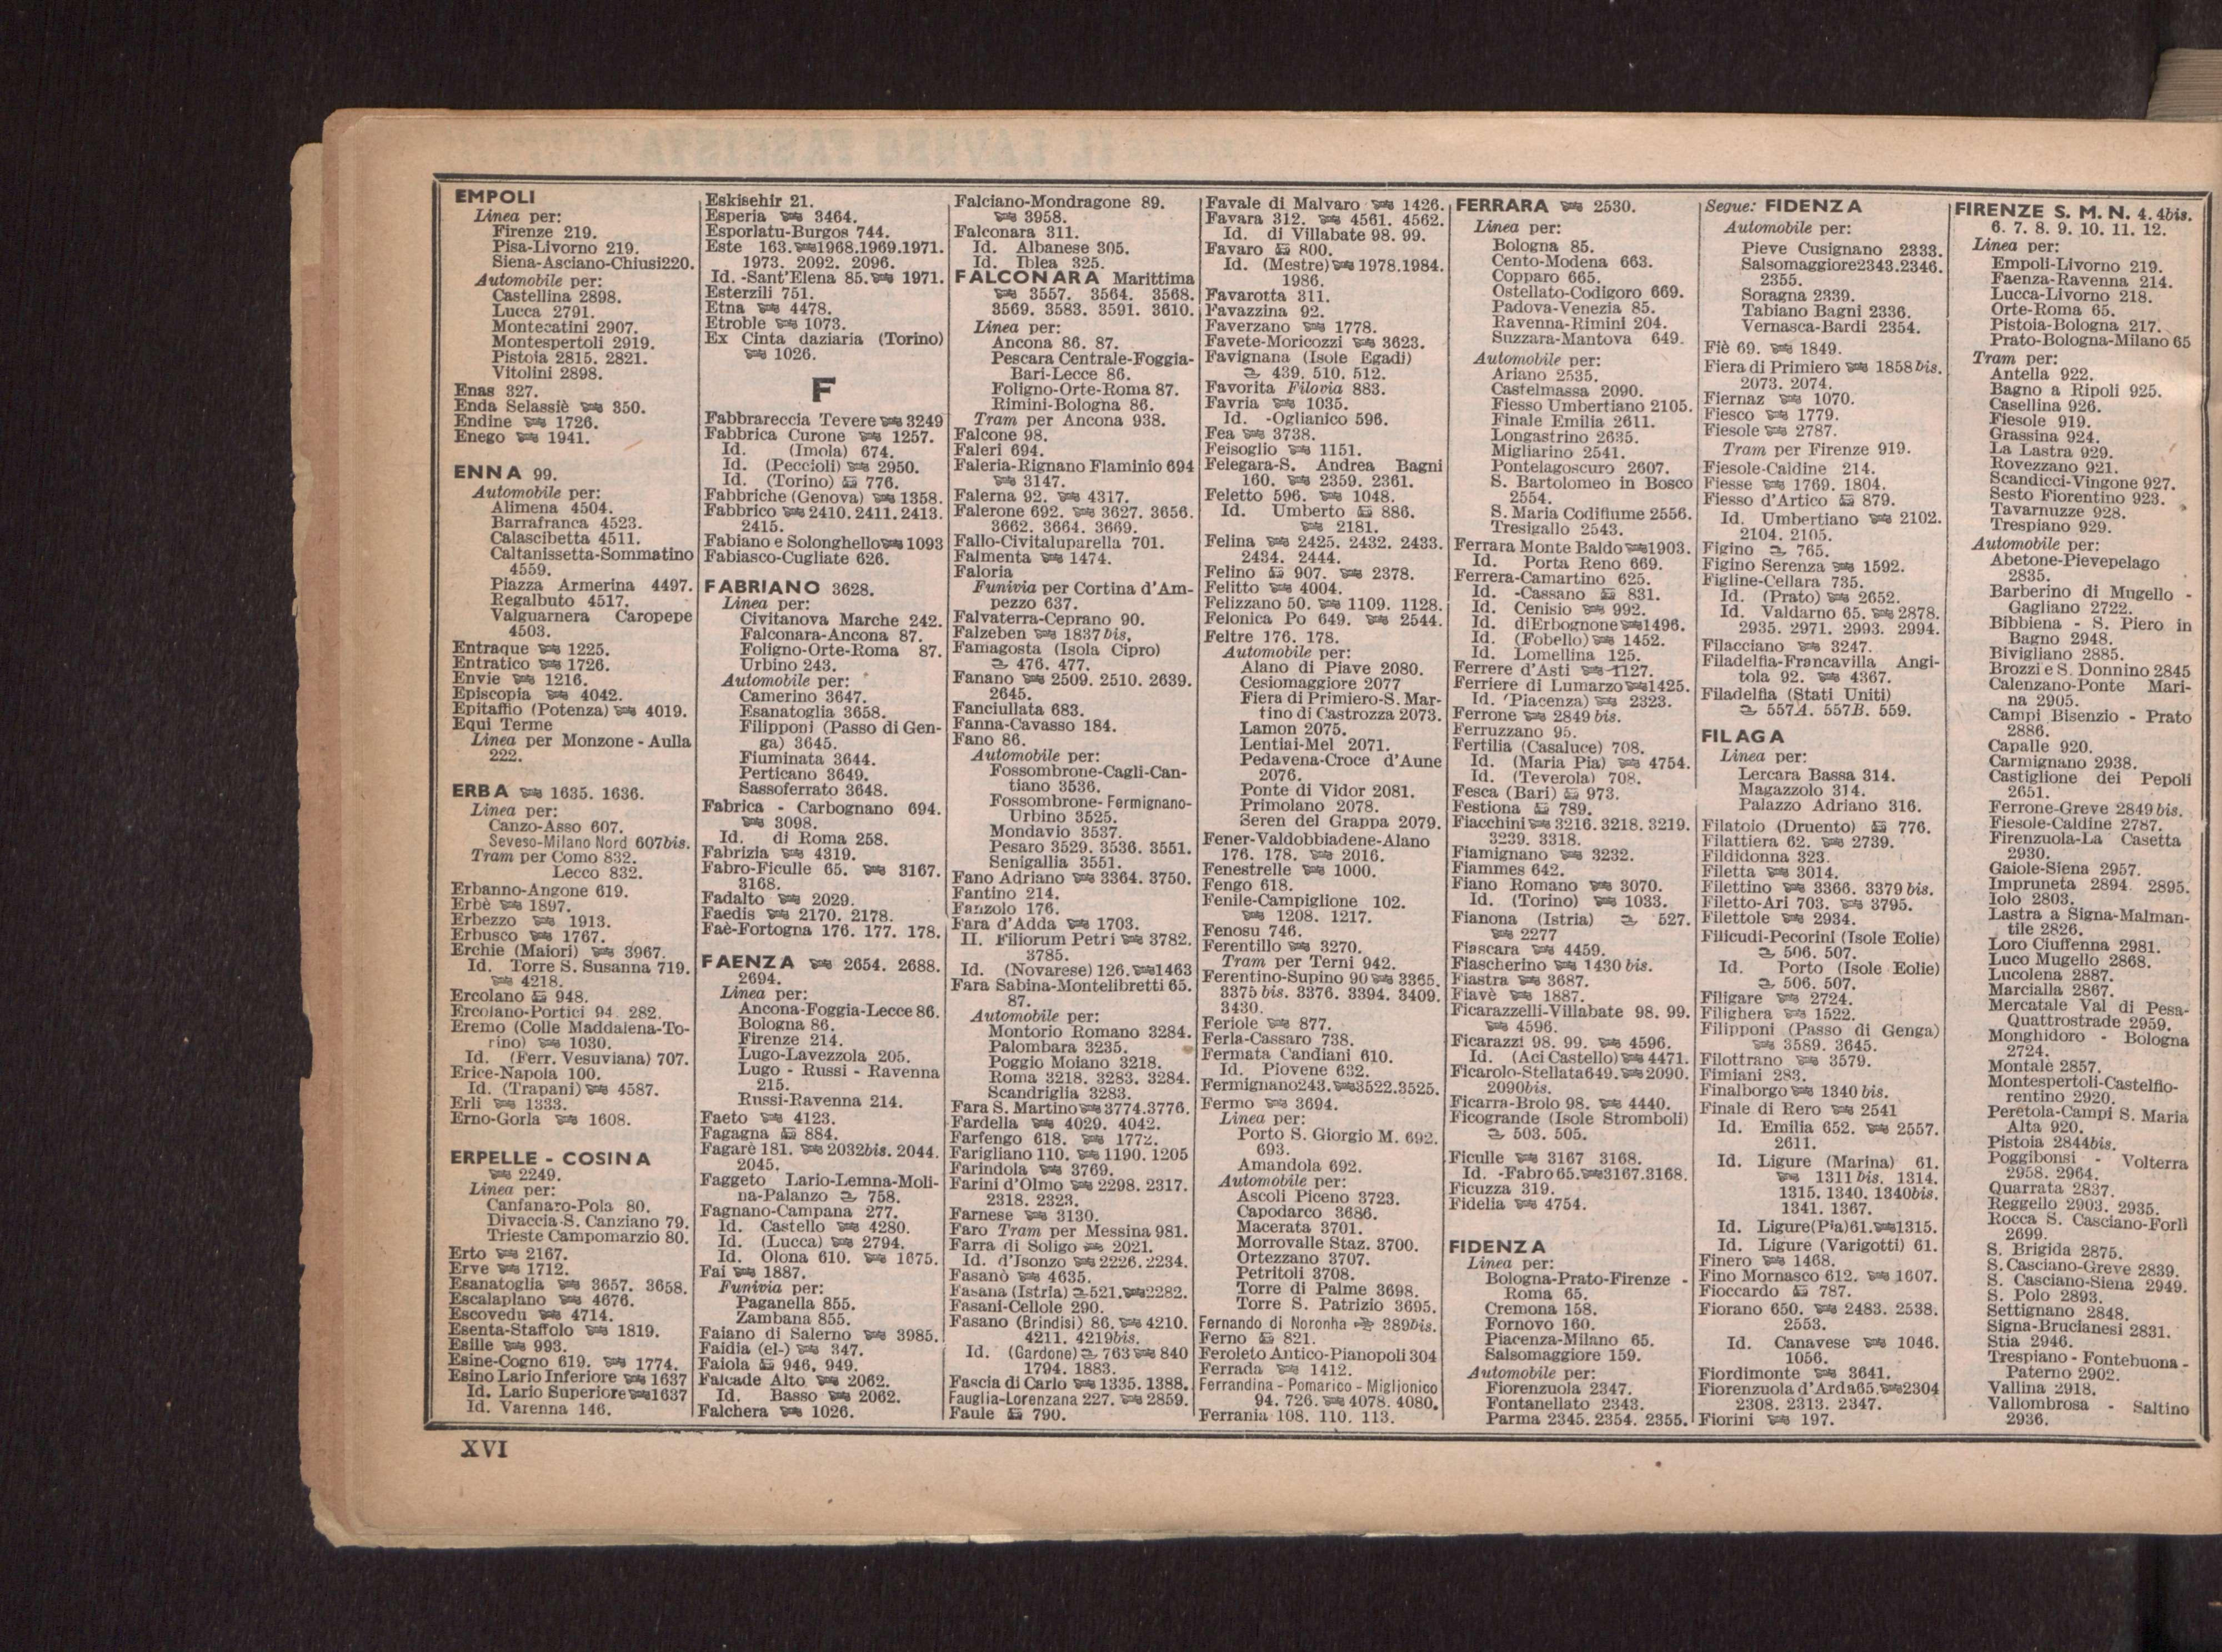 EMPOLI
Linea per:
Firenze 219.
Pisa-Livorno 219.
Siena-Asciano-Chiusi220.
Automobile per:
Castellina 2898.
Lucca 2791.
Montecatini 2907.
Montespertoli 2919.
Pistoia 2815. 2821.
Vitolini 2898.
Enas 327.
Enda Selassiè 350.
Endine 1726.
Enego 1941.
ENNA 99.
Automobile per:
Alimena 4504.
Barrafranca 4523.
Calascibetta 4511.
Caltanissetta-Sommatino
4559.
Piazza Armerina 4497.
Regalbuto 4517.
Valguarnera Caropepe
4503.
Entraque 1225.
Entratico 1726.
Envie 1216.
Episcopia 4042.
Epitaffio (Potenza) 4019.
Equi Terme
Linea per Monzone - Aulla
222.
ERBA 1635. 1636.
Linea per:
Canzo-Asso 607.
Seveso-Milano Nord 607bis.
Tram per Como 832.
Lecco 832.
Erbanno-Angone 619.
Erbè 1897.
Erbezzo 1913.
Erbusco 1767.
Erchie (Maiori) 3967.
Id. Torre S. Susanna 719.
4218.
Ercolano 948.
Ercolano-Portici 94. 282.
Eremo (Colle Maddalena-To-
rino) 1030.
Id. (Ferr. Vesuviana) 707.
Erice-Napola 100.
Id. (Trapani) 4587.
Erli 1333.
Erno-Gorla 1608.
ERPELLE - COSINA
2249.
Linea per:
Canfanaro-Pola 80.
Divaccia-S. Canziano 79.
Trieste Campomarzio 80.
Erto 2167.
Erve 1712.
Esanatoglia 3657. 3658.
Escalaplano 4676.
Escovedu 4714.
Esenta-Staffolo 1819.
Esille 993.
Esine-Cogno 619. 1774.
Esino Lario Inferiore 1637
Id. Lario Superiore 1637
Id. Varenna 146.
Eskisehir 21.
Esperia 3464.
Esporlatu-Burgos 744.
Este 163. 1968.1969.1971.
1973. 2092. 2096.
Id. -Sant'Elena 85. 1971.
Esterzili 751.
Etna 4478.
Etroble 1073.
Ex Cinta daziaria (Torino)
1026.
F
Fabbrareccia Tevere 3249
Fabbrica Curone 1257.
Id. (Imola) 674.
Id. (Peccioli) 2950.
Id. (Torino) 776.
Fabbriche (Genova) 1358.
Fabbrico 2410. 2411. 2413.
2415.
Fabiano e Solonghello 1093
Fabiasco-Cugliate 626.
FABRIANO 3628.
Linea per:
Civitanova Marche 242.
Falconara-Ancona 87.
Foligno-Orte-Roma 87.
Urbino 243.
Automobile per:
Camerino 3647.
Esanatoglia 3658.
Filipponi (Passo di Gen-
ga) 3645.
Fiuminata 3644.
Perticano 3649.
Sassoferrato 3648.
Fabrica - Carbognano 694.
3098.
Id. di Roma 258.
Fabrizia 4319.
Fabro-Ficulle 65. 3167.
3168.
Fadalto 2029.
Faedis 2170. 2178.
Faè-Fortogna 176. 177. 178.
FAENZA 2654. 2688.
2694.
Linea per:
Ancona-Foggia-Lecce 86.
Bologna 86.
Firenze 214.
Lugo-Lavezzola 205.
Lugo - Russi - Ravenna
215.
Russi-Ravenna 214.
Faeto 4123.
Fagagna 884.
Fagarè 181. 2032bis. 2044.
2045.
Faggeto Lario-Lemna-Moli-
na-Palanzo 758.
Fagnano-Campana 277.
Id. Castello 4280.
Id. (Lucca) 2794.
Id. Olona 610. 1675.
Fai 1887.
Funivia per:
Paganella 855.
Zambana 855.
Faiano di Salerno 3985.
Faidia (el-) 347.
Faiola 946. 949.
Falcade Alto 2062.
Id. Basso 2062.
Falchera 1026.
Falciano-Mondragone 89.
3958.
Falconara 311.
Id. Albanese 305.
Id. Iblea 325.
FALCONARA Marittima
3557. 3564. 3568.
3569. 3583. 3591. 3610.
Linea per:
Ancona 86. 87.
Pescara Centrale-Foggia-
Bari-Lecce 86.
Foligno-Orte-Roma 87.
Rimini-Bologna 86.
Tram per Ancona 938.
Falcone 98.
Faleri 694.
Faleria-Rignano Flaminio 694
3147.
Falerna 92. 4317.
Falerone 692. 3627. 3656.
3662. 3664. 3669.
Fallo-Civitaluparella 701.
Falmenta 1474.
Faloria
Funivia per Cortina d'Am-
pezzo 637.
Falvaterra-Ceprano 90.
Falzeben 1837bis.
Famagosta (Isola Cipro)
476. 477.
Fanano 2509. 2510. 2639.
2645.
Fanciullata 683.
Fanna-Cavasso 184.
Fano 86.
Automobile per:
Fossombrone-Cagli-Can-
tiano 3536.
Fossombrone-Fermignano-
Urbino 3525.
Mondavio 3537.
Pesaro 3529. 3536. 3551.
Senigallia 3551.
Fano Adriano 3364. 3750.
Fantino 214.
Fanzolo 176.
Fara d'Adda 1703.
II. Filiorum Petri 3782.
3785.
Id. (Novarese) 126. 1463
Fara Sabina-Montelibretti 65.
87.
Automobile per:
Montorio Romano 3284.
Palombara 3235.
Poggio Moiano 3218.
Roma 3218. 3283. 3284.
Scandriglia 3283.
Fara S. Martino 3774.3776.
Fardella 4029. 4042.
Farfengo 618. 1772.
Farigliano 110. 1190. 1205
Farindola 3769.
Farini d'Olmo 2298. 2317.
2318. 2323.
Farnese 3130.
Faro Tram per Messina 981.
Farra di Soligo 2021.
Id. d'Isonzo 2226. 2234.
Fasanò 4635.
Fasana (Istria) 521. 2282.
Fasani-Cellole 290.
Fasano (Brindisi) 86. 4210.
4211. 4219bis.
Id. (Gardone) 763 840
1794. 1883.
Fascia di Carlo 1335. 1388.
Fauglia-Lorenzana 227. 2859.
Faule 790.
Favale di Malvaro 1426.
Favara 312. 4561. 4562.
Id. di Villabate 98. 99.
Favaro 800.
Id. (Mestre) 1978.1984.
1986.
Favarotta 311.
Favazzina 92.
Faverzano 1778.
Favete-Moricozzi 3623.
Favignana (Isole Egadi)
439. 510. 512.
Favorita Filovia 883.
Favria 1035.
Id. -Oglianico 596.
Fea 3738.
Feisoglio 1151.
Felegara-S. Andrea Bagni
160. 2359. 2361.
Feletto 596. 1048.
Id. Umberto 886.
2181.
Felina 2425. 2432. 2433.
2434. 2444.
Felino 907. 2378.
Felitto 4004.
Felizzano 50. 1109. 1128.
Felonica Po 649. 2544.
Feltre 176. 178.
Automobile per:
Alano di Piave 2080.
Cesiomaggiore 2077
Fiera di Primiero-S. Mar-
tino di Castrozza 2073.
Lamon 2075.
Lentiai-Mel 2071.
Pedavena-Croce d'Aune
2076.
Ponte di Vidor 2081.
Primolano 2078.
Seren del Grappa 2079.
Fener-Valdobbiadene-Alano
176. 178. 2016.
Fenestrelle 1000.
Fengo 618.
Fenile-Campiglione 102.
1208. 1217.
Fenosu 746.
Ferentillo 3270.
Tram per Terni 942.
Ferentino-Supino 90 3365.
3375bis. 3376. 3394. 3409.
3430.
Feriole 877.
Ferla-Cassaro 738.
Fermata Candiani 610.
Id. Piovene 632.
Fermignano243. 3522.3525.
Fermo 3694.
Linea per:
Porto S. Giorgio M. 692.
693.
Amandola 692.
Automobile per:
Ascoli Piceno 3723.
Capodarco 3686.
Macerata 3701.
Morrovalle Staz. 3700.
Ortezzano 3707.
Petritoli 3708.
Torre di Palme 3698.
Torre S. Patrizio 3695.
Fernando di Noronha 389bis.
Ferno 821.
Feroleto Antico-Pianopoli 304
Ferrada 1412.
Ferrandina - Pomarico - Miglionico
94. 726. 4078. 4080.
Ferrania 108. 110. 113.
FERRARA 2530.
Linea per:
Bologna 85.
Cento-Modena 663.
Copparo 665.
Ostellato-Codigoro 669.
Padova-Venezia 85.
Ravenna-Rimini 204.
Suzzara-Mantova 649.
Automobile per:
Ariano 2535.
Castelmassa 2090.
Fiesso Umbertiano 2105.
Finale Emilia 2611.
Longastrino 2635.
Migliarino 2541.
Pontelagoscuro 2607.
S. Bartolomeo in Bosco
2554.
S. Maria Codifiume 2556.
Tresigallo 2543.
Ferrara Monte Baldo 1903.
Id. Porta Reno 669.
Ferrera-Camartino 625.
Id. -Cassano 831.
Id. Cenisio 992.
Id. diErbognone 1496.
Id. (Fobello) 1452.
Id. Lomellina 125.
Ferrere d'Asti 1127.
Ferriere di Lumarzo 1425.
Id. (Piacenza) 2323.
Ferrone 2849 bis.
Ferruzzano 95.
Fertilia (Casaluce) 708.
Id. (Maria Pia) 4754.
Id. (Teverola) 708.
Fesca (Bari) 973.
Festiona 789.
Fiacchini 3216. 3218. 3219.
3239. 3318.
Fiamignano 3232.
Fiammes 642.
Fiano Romano 3070.
Id. (Torino) 1033.
Fianona (Istria) 527.
2277
Fiascara 4459.
Fiascherino 1430 bis.
Fiastra 3687.
Fiavè 1887.
Ficarazzelli-Villabate 98. 99.
4596.
Ficarazzi 98. 99. 4596.
Id. (Aci Castello) 4471.
Ficarolo-Stellata649. 2090.
2090bis.
Ficarra-Brolo 98. 4440.
Ficogrande (Isole Stromboli)
503. 505.
Ficulle 3167 3168.
Id. -Fabro 65. 3167.3168.
Ficuzza 319.
Fidelia 4754.
FIDENZA
Linea per:
Bologna-Prato-Firenze -
Roma 65.
Cremona 158.
Fornovo 160.
Piacenza-Milano 65.
Salsomaggiore 159.
Automobile per:
Fiorenzuola 2347.
Fontanellato 2343.
Parma 2345. 2354. 2355.
Segue: FIDENZA
Automobile per:
Pieve Cusignano 2333.
Salsomaggiore2343.2346.
2355.
Soragna 2339.
Tabiano Bagni 2336.
Vernasca-Bardi 2354.
Fiè 69. 1849.
Fiera di Primiero 1858bis.
2073. 2074.
Fiernaz 1070.
Fiesco 1779.
Fiesole 2787.
Tram per Firenze 919.
Fiesole-Caldine 214.
Fiesse 1769. 1804.
Fiesso d'Artico 879.
Id. Umbertiano 2102.
2104. 2105.
Figino 765.
Figino Serenza 1592.
Figline-Cellara 735.
Id. (Prato) 2652.
Id. Valdarno 65. 2878.
2935. 2971. 2993. 2994.
Filacciano 3247.
Filadelfia-Francavilla Angi-
tola 92. 4367.
Filadelfia (Stati Uniti)
557A. 557B. 559.
FILAGA
Linea per:
Lercara Bassa 314.
Magazzolo 314.
Palazzo Adriano 316.
Filatoio (Druento) 776.
Filattiera 62. 2739.
Fildidonna 323.
Filetta 3014.
Filettino 3366. 3379 bis.
Filetto-Ari 703. 3795.
Filettole 2934.
Filicudi-Pecorini (Isole Eolie)
506. 507.
Id. Porto (Isole Eolie)
506. 507.
Filigare 2724.
Filighera 1522.
Filipponi (Passo di Genga)
3589. 3645.
Filottrano 3579.
Fimiani 283.
Finalborgo 1340 bis.
Finale di Rero 2541
Id. Emilia 652. 2557.
2611.
Id. Ligure (Marina) 61.
1311 bis. 1314.
1315. 1340. 1340bis.
1341. 1367.
Id. Ligure(Pia)61. 1315.
Id. Ligure (Varigotti) 61.
Finero 1468.
Fino Mornasco 612. 1607.
Fioccardo 787.
Fiorano 650. 2483. 2538.
2553.
Id. Canavese 1046.
1056.
Fiordimonte 3641.
Fiorenzuola d'Arda65. 2304
2308. 2313. 2347.
Fiorini 197.
FIRENZE S. M. N. 4. 4bis.
6. 7. 8. 9. 10. 11. 12.
Linea per:
Empoli-Livorno 219.
Faenza-Ravenna 214.
Lucca-Livorno 218.
Orte-Roma 65.
Pistoia-Bologna 217.
Prato-Bologna-Milano 65
Tram per:
Antella 922.
Bagno a Ripoli 925.
Casellina 926.
Fiesole 919.
Grassina 924.
La Lastra 929.
Rovezzano 921.
Scandicci-Vingone 927.
Sesto Fiorentino 923.
Tavarnuzze 928.
Trespiano 929.
Automobile per:
Abetone-Pievepelago
2835.
Barberino di Mugello -
Gagliano 2722.
Bibbiena - S. Piero in
Bagno 2948.
Bivigliano 2885.
Brozzi e S. Donnino 2845
Calenzano-Ponte Mari-
na 2905.
Campi Bisenzio - Prato
2886.
Capalle 920.
Carmignano 2938.
Castiglione dei Pepoli
2651.
Ferrone-Greve 2849 bis.
Fiesole-Caldine 2787.
Firenzuola-La Casetta
2930.
Gaiole-Siena 2957.
Impruneta 2894. 2895.
Iolo 2803.
Lastra a Signa-Malman-
tile 2826.
Loro Ciuffenna 2981.
Luco Mugello 2868.
Lucolena 2887.
Marcialla 2867.
Mercatale Val di Pesa-
Quattrostrade 2959.
Monghidoro - Bologna
2724.
Montale 2857.
Montespertoli-Castelfio-
rentino 2920.
Peretola-Campi S. Maria
Alta 920.
Pistoia 2844bis.
Poggibonsi - Volterra
2958. 2964.
Quarrata 2837.
Reggello 2903. 2935.
Rocca S. Casciano-Forlì
2699.
S. Brigida 2875.
S. Casciano-Greve 2839.
S. Casciano-Siena 2949.
S. Polo 2893.
Settignano 2848.
Signa-Brucianesi 2831.
Stia 2946.
Trespiano - Fontebuona -
Paterno 2902.
Vallina 2918.
Vallombrosa - Saltino
2936.
XVI